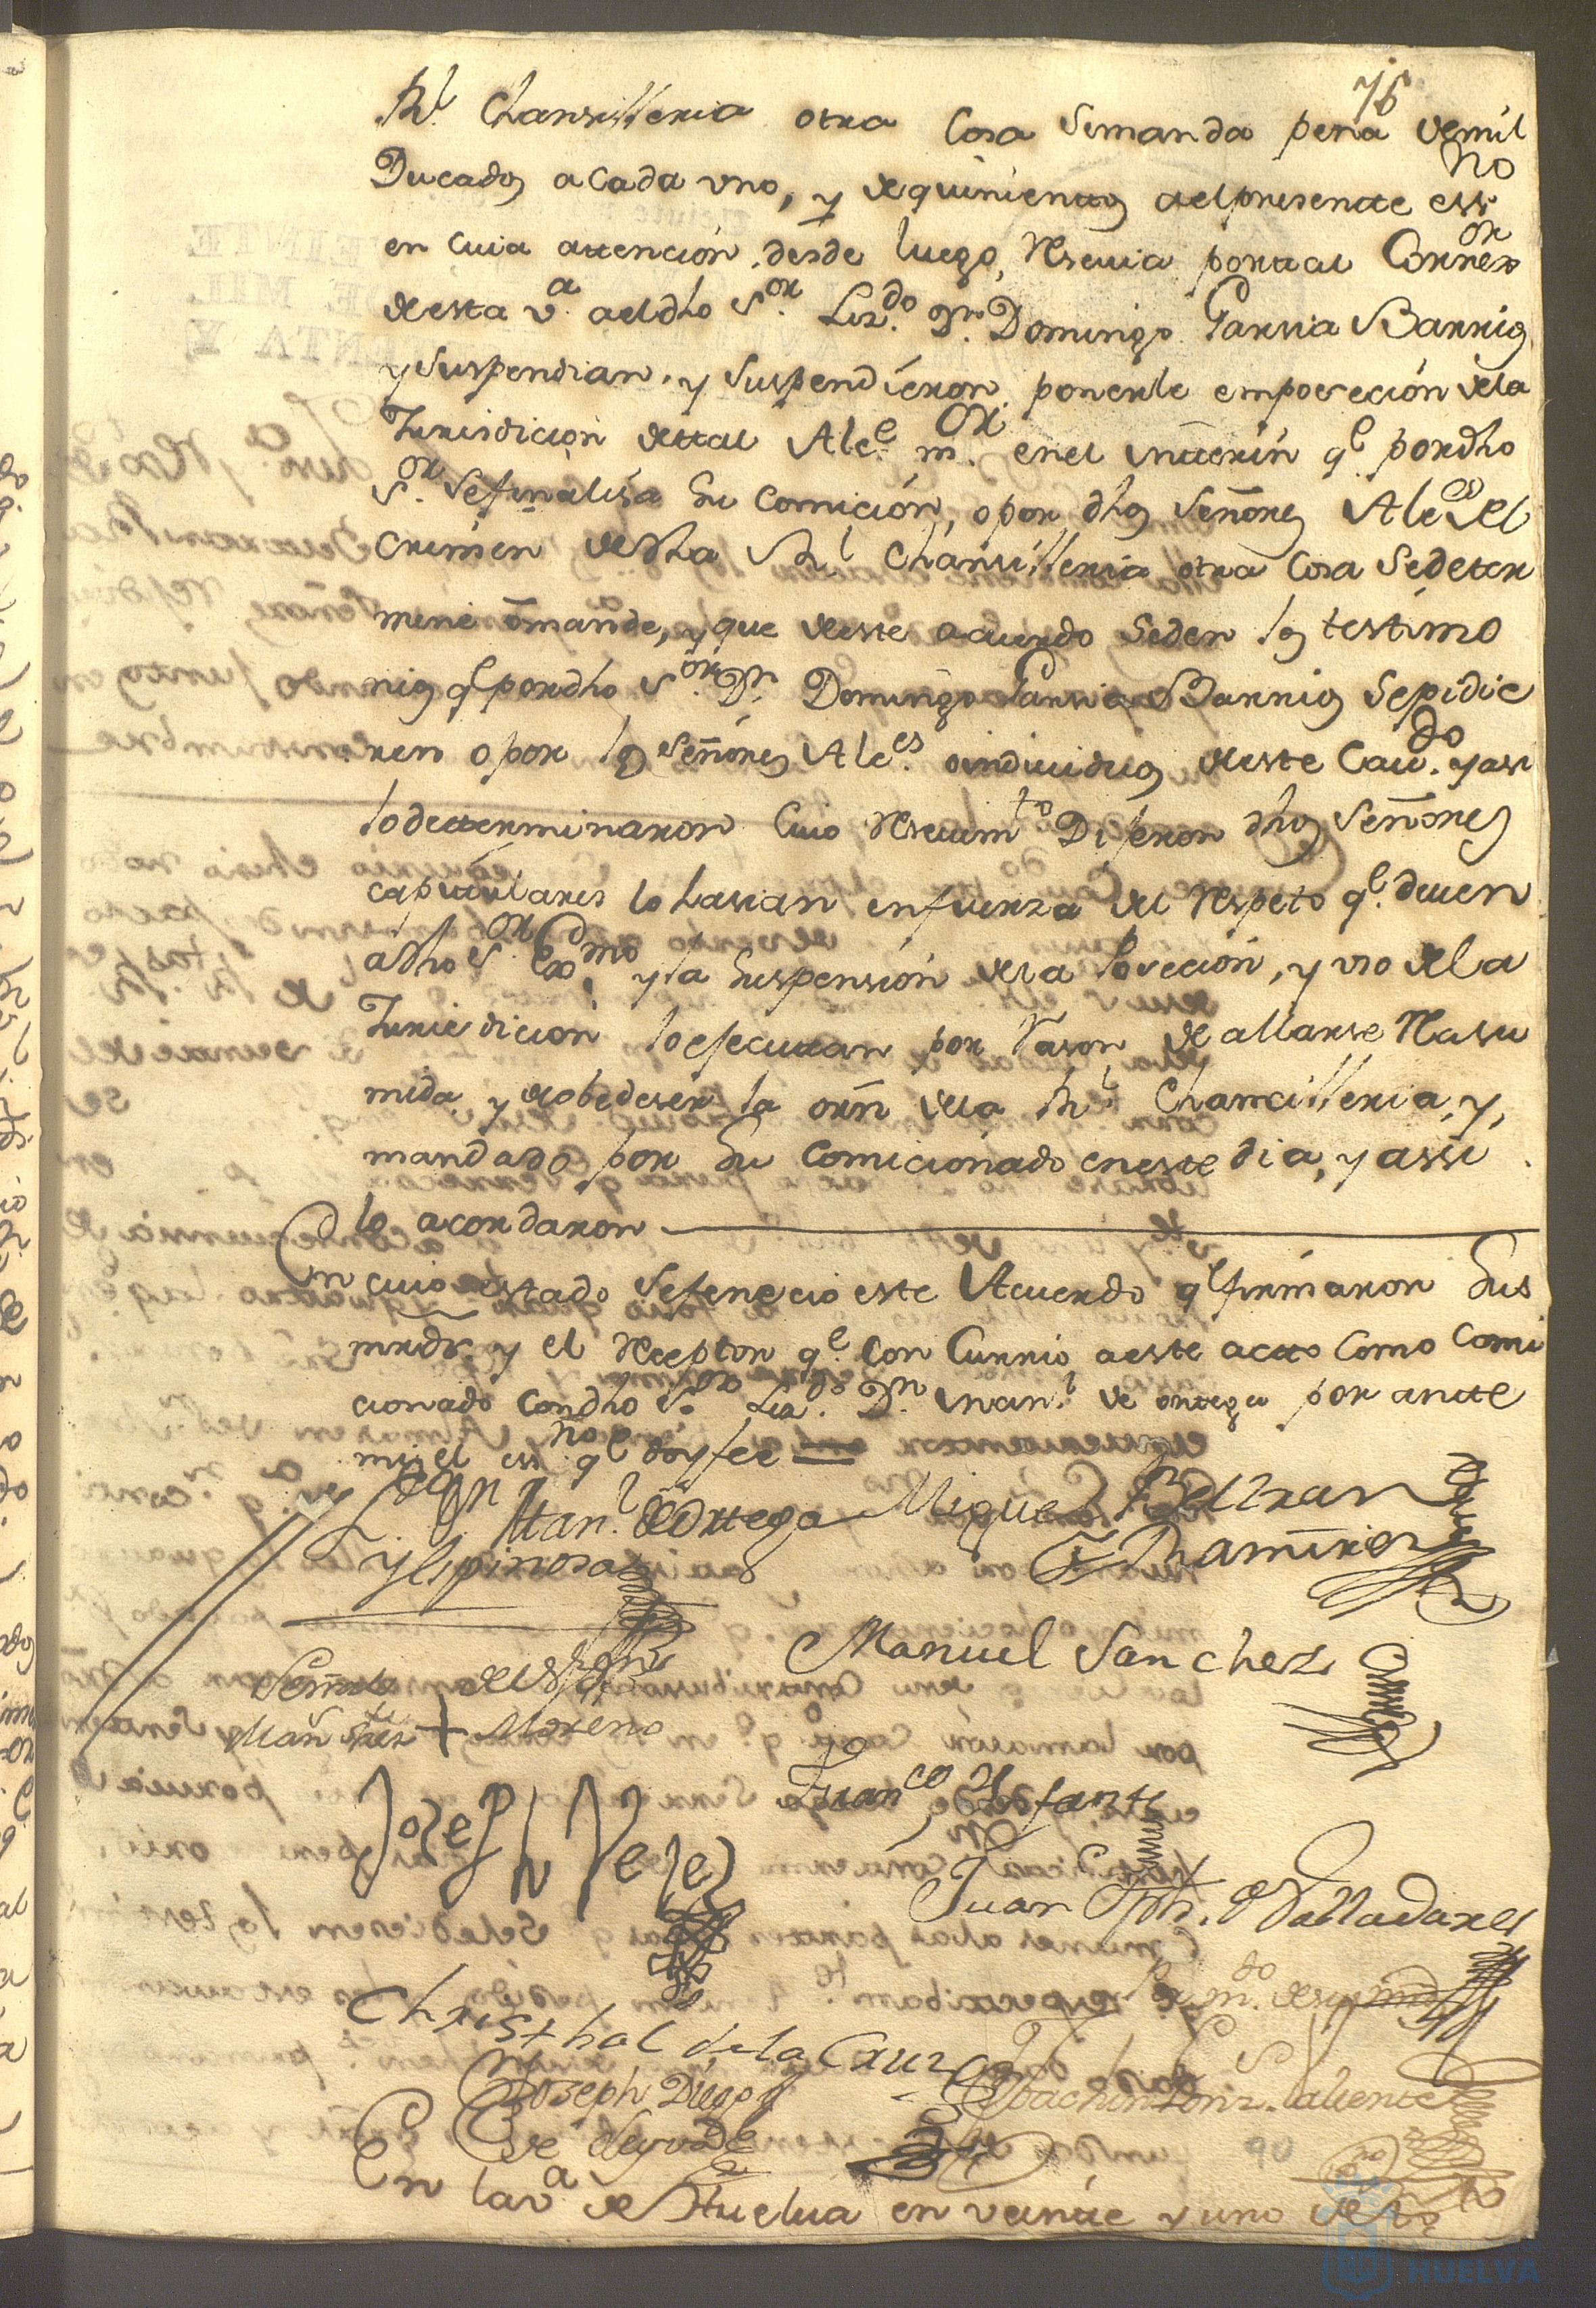 76
Rl. Chansilleria otra Cosa semanda pena demil
Ducados acada vno, y dequinientos aelpresente essno
en cuia attención desde luego, Reseuia portal Corrreor
desta va. aeldho Sor. Lizdo. Dn. Domingo Garsia Barrios
ysuspendian, y suspendieron ponerle emposeción dela
Jurisdicion dettal Alce. mor. enel yntterin qe. pordho
Sor. sefinalisa su comición, opor dhos señores Alces del
crimen dedha Rl. Chansilleria otra Cosa sedeter
mine ómande, yque deeste acuerdo seden los testimo
nios qe pordho Sor. Dn. Domingo Garsia Barrios sepidie
ren opor los señores Alces. oindiuiduos deeste Caudo. yasi
lodetterminaron Cuio Reseuimto Dijeron dhos señores
capitulares lo hasian enfuerza del Respeto qe. deuen
adho Sor. Exmo. y la suspensión dela Poseción, y vso dela
Jurisdicion loejecuttan por Rason de allarse Rasu
mida y deobedeser la orn̄ dela Rl. Chancilleria, y,
mandado por su comicionado eneste dia, y assi
lo acordaron
En cuio estado sefenecio este Acuerdo qe firmaron sus
mrds. y el Receptor qe. con Currio aeste actto como comi
cionado condho Sor. Liz.do Dn. Manl. de ortega por antte
mi el essno qe doyfee =
L. Dn Manl. deOrttega
yEspinosa
Miguel Beltran
Ramirez
Manuel Sanchez
Señal del Sr
Moreno
Franco Ynfante
Joseph Velez
Juan Jph. de Valladares
Christhal de la Cruz
Joseph Diego
Joachin Gonz. Caliente
En la va de Huelua en veintte y uno de
HUELVA